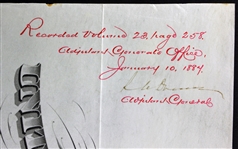 Recorded Volume 23, page 258.
Adjutant General's Office,
January 10, 1884.
Adjutant General.